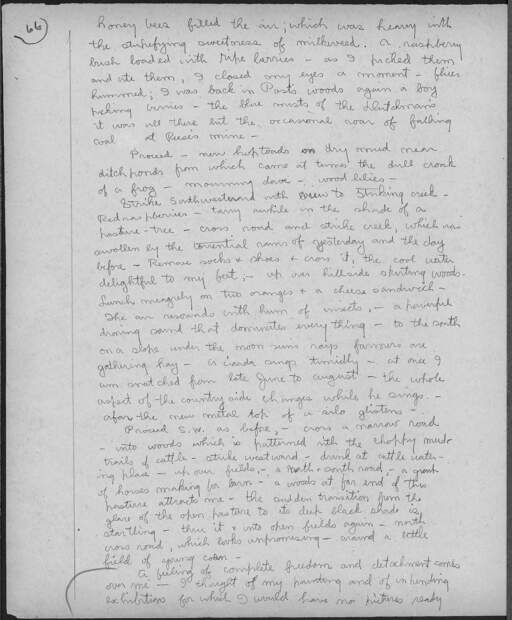 66
honey bees filled the air; which was heavy with
the stupefying sweetness of milkweed. A raspberry
bush loaded with ripe berries - as I picked them
and ate them, I closed my eyes a moment - flies
hummed; I was back in Posts woods again a boy
picking berries - the blue mists of the Dutchman's
it was all there but the occasional roar of falling
coal at Reese's mine -
Proceed - new hoptoads on dry mud near
ditch ponds from which came at times the dull croak
of a frog - mourning dove - wood lilies -
Strike Southwestward with view to striking creek -
Red raspberries - tarry awhile in the shade of a
pasture-tree - cross road and strike creek, which was
swollen by the torrential rains of yesterday and the day
before - Remove socks & shoes & cross it, the cool water
delightful to my feet; - up over hillside skirting woods.
Lunch meagrely on two oranges & a cheese sandwich -
The air resounds with hum of insects, - a powerful
droning sound that dominates everything - to the south
on a slope under the noon sun's rays farmers are
gathering hay - a cicada sings timidly - at once I
am snatched from late June to August - the whole
aspect of the countryside changes while he sings. -
afar the new metal top of a silo glistens -
Proceed S.W. as before, - cross a narrow road
- into woods which is patterned with the choppy mud-
trails of cattle - strike westward - drink at cattle water-
ing place - up over fields, - a north & south road, - a group
of horses making for barn - a woods at far end of this
pasture attracts me - the sudden transition from the
glare of the open pasture to its deep black shade is
startling - thru it & into open fields again - north
cross road, which looks unpromising - around a little
field of young corn -
A feeling of complete freedom and detachment comes
over me - I thought of my painting and of impending
exhibition for which I would have no pictures ready